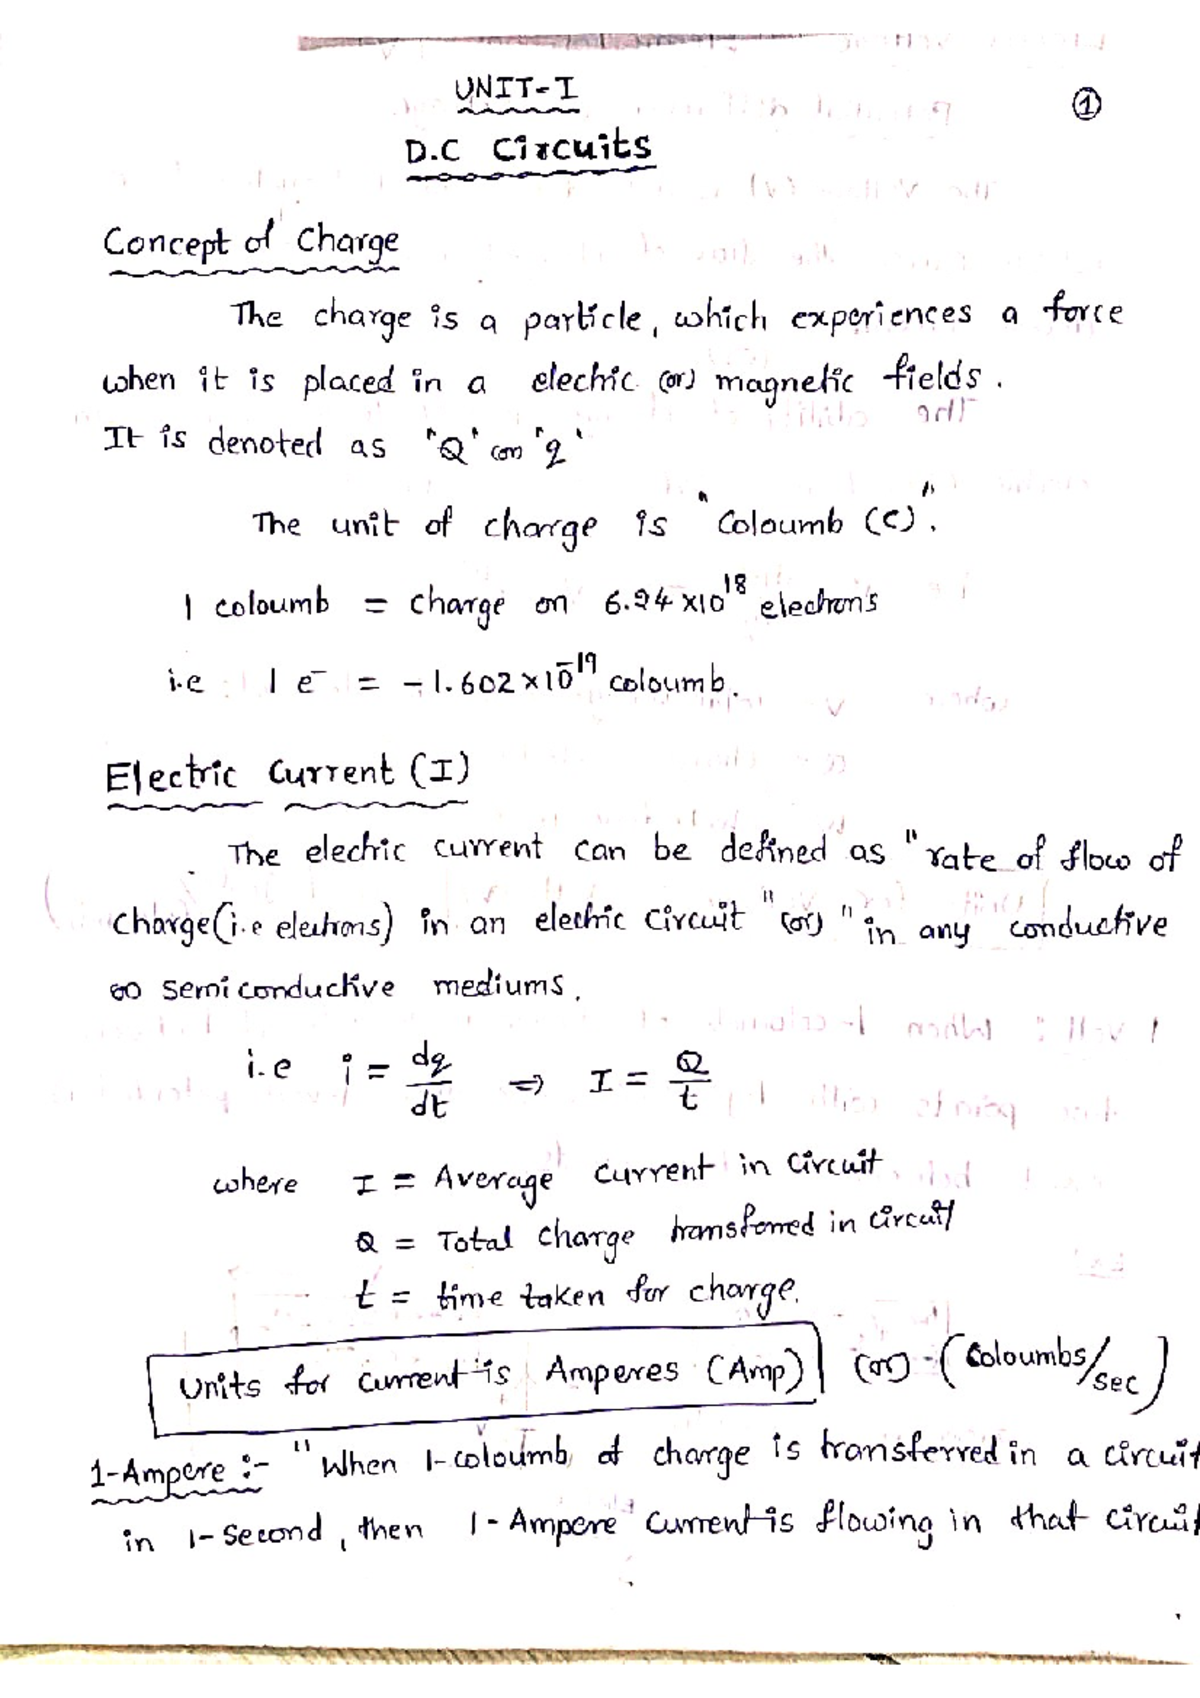 UNIT-I
①
D.C Circuits
Concept of Charge
The charge is a particle, which experiences a force
when it is placed in a electric (or) magnetic fields.
It is denoted as "Q" (or) "q"
The unit of charge is "Coloumb (C)".
1 coloumb = charge on 6.24 x10^18 electrons
i.e 1 e⁻ = -1.602 x 10^-19 coloumb.
Electric Current (I)
The electric current can be defined as "rate of flow of
charge (i.e electrons) in an electric circuit" (or) "in any conductive
(or) semi conductive mediums.
i.e i = dq/dt ⇒ I = Q/t
where I = Average current in circuit
Q = Total charge transferred in circuit
t = time taken for charge.
Units for current is Amperes (Amp) (or) - (Coloumbs/sec)
1-Ampere :- "When 1-coloumb of charge is transferred in a circuit
in 1-second, then 1-Ampere current is flowing in that circuit